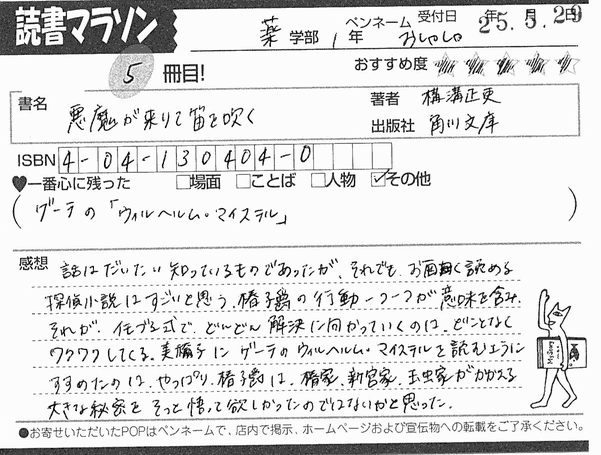 読書マラソン
薬 学部 1 年 ペンネーム おしゃしゃ 受付日 25.5.29 年 月 日
5 冊目! おすすめ度
書名 悪魔が来りて笛を吹く 著者 横溝正史
出版社 角川文庫
ISBN 4-04-130404-0
♥一番心に残った □場面 □ことば □人物 ☑その他
(ゲーテの「ウィルヘルム・マイステル」)
感想 話はだいたい知っているものであったが、それでも、お面白く読める
探偵小説はすごいと思う。椿子爵の行動一つ一つが意味を含み、
それが、イモヅル式で、どんどん解決に向かっていくのは、どことなく
ワクワクしてくる。美禰子にゲーテのウィルヘルム・マイステルを読むように
すすめたのは、やっぱり、椿子爵は、椿家、新宮家、玉虫家がかかえる
大きな秘密をそっと悟って欲しかったのではないかと思った。
●お寄せいただいたPOPはペンネームで、店内で掲示、ホームページおよび宣伝物への転載をご了承ください。